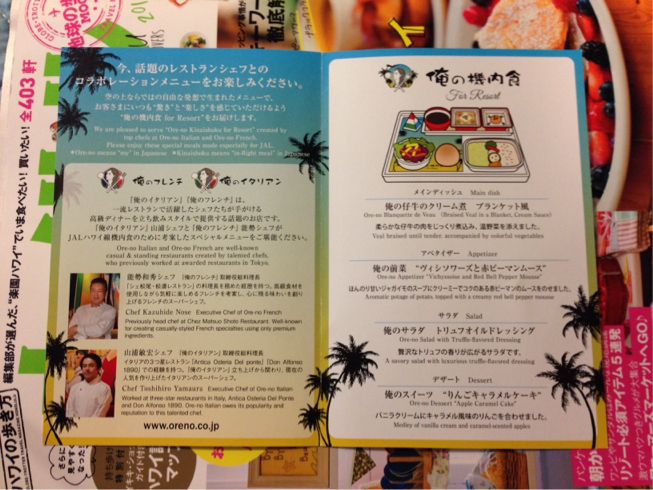 今、話題のレストランシェフとの
コラボレーションメニューをお楽しみください。
空の上ならではの自由な発想で生まれたメニューで、
お客さまにいつも"驚き"と"楽しさ"を感じていただけるよう
"俺の機内食 for Resort"をお届けします。
We are pleased to serve "Ore-no Kinaishoku for Resort" created by
top chefs at Ore-no Italian and Ore-no French.
Please enjoy these special meals made especially for JAL.
*Ore-no means "my" in Japanese *Kinaishoku means "in-flight meal" in Japanese
俺のフレンチ 俺のイタリアン
「俺のイタリアン」「俺のフレンチ」は、
一流レストランで活躍したシェフたちが手がける
高級ディナーを立ち飲みスタイルで提供する話題のお店です。
「俺のイタリアン」山浦シェフと「俺のフレンチ」能勢シェフが
JALハワイ線機内食のために考案したスペシャルメニューをご堪能ください。
Ore-no Italian and Ore-no French are well-known
casual & standing restaurants created by talented chefs,
who previously worked at awarded restaurants in Tokyo.
能勢和秀シェフ 「俺のフレンチ」取締役総料理長
「シェ松尾・松濤レストラン」の料理長を務めた経歴を持つ。高級食材を
使用しながら気軽に楽しめるフレンチを考案し、心に残る味わいを創り
上げるフレンチのスーパーシェフ。
Chef Kazuhide Nose Executive Chef of Ore-no French
Previously head chef at Chez Matsuo Shoto Restaurant. Well-known
for creating casually-styled French specialties using only premium
ingredients.
山浦敏宏シェフ 「俺のイタリアン」取締役総料理長
イタリアの3つ星レストラン「Antica Osteria Del Ponte」「Don Alfonso
1890」での経験を持つ。「俺のイタリアン」立ち上げから関わり、現在の
人気を作り上げたイタリアンのスーパーシェフ。
Chef Toshihiro Yamaura Executive Chef of Ore-no Italian
Worked at three-star restaurants in Italy, Antica Osteria Del Ponte
and Don Alfonso 1890. Ore-no Italian owes its popularity and
reputation to this talented chef.
www.oreno.co.jp
俺の機内食
For Resort
メインディッシュ Main dish
俺の仔牛のクリーム煮 ブランケット風
Ore-no Blanquette de Veau (Braised Veal in a Blanket, Cream Sauce)
柔らかな仔牛の肉をじっくり煮込み、温野菜を添えました。
Veal braised until tender, accompanied by colorful vegetables
アペタイザー Appetizer
俺の前菜 "ヴィシソワーズと赤ピーマンムース"
Ore-no Appetizer "Vichyssoise and Red Bell Pepper Mousse"
ほんのり甘いジャガイモのスープにクリーミーでコクのある赤ピーマンのムースをのせました。
Aromatic potage of potato, topped with a creamy red bell pepper mousse
サラダ Salad
俺のサラダ トリュフオイルドレッシング
Ore-no Salad with Truffle-flavored Dressing
贅沢なトリュフの香りが広がるサラダです。
A savory salad with luxurious truffle-flavored dressing
デザート Dessert
俺のスイーツ "りんごキャラメルケーキ"
Ore-no Dessert "Apple Caramel Cake"
バニラクリームにキャラメル風味のりんごを合わせました。
Medley of vanilla cream and caramel-scented apples
編集部が選んだ、"楽園ハワイ"でいま食べたい!買いたい!全403軒
ハワイの歩き方
地球の歩き方
さらに
見やすく
なった
持ち歩き
特別付
ガイド付
マップ
リゾート必須アイテム5連発